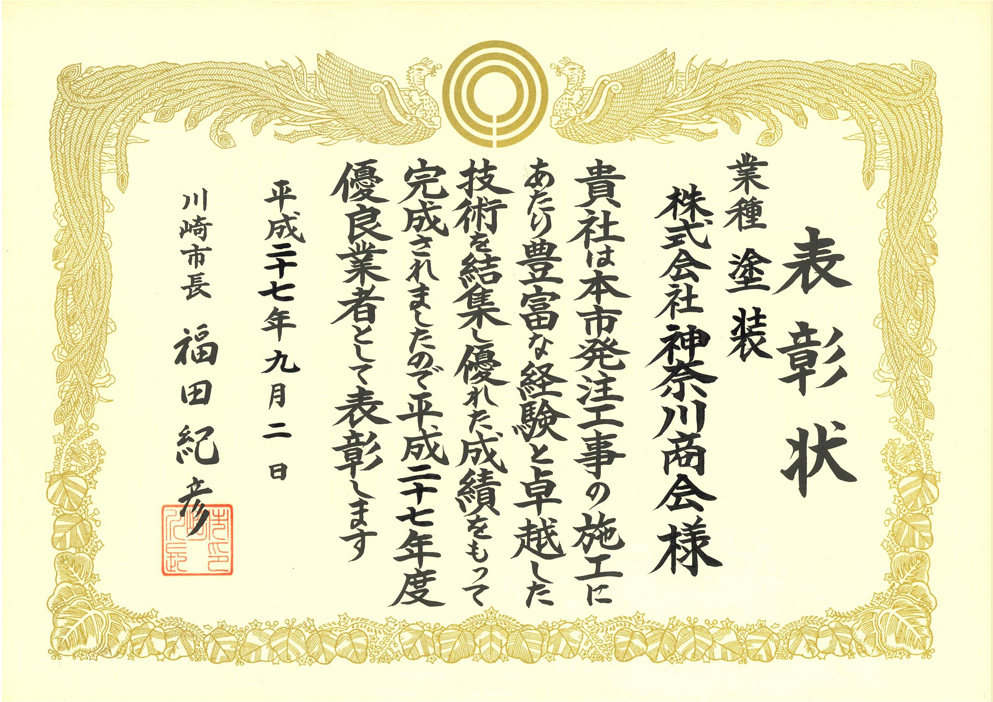 表彰状
業種 塗装
株式会社 神奈川商会様
貴社は本市発注工事の施工に
あたり豊富な経験と卓越した
技術を結集し優れた成績をもって
完成されましたので平成二十七年度
優良業者として表彰します
平成二十七年九月二日
川崎市長 福田紀彦